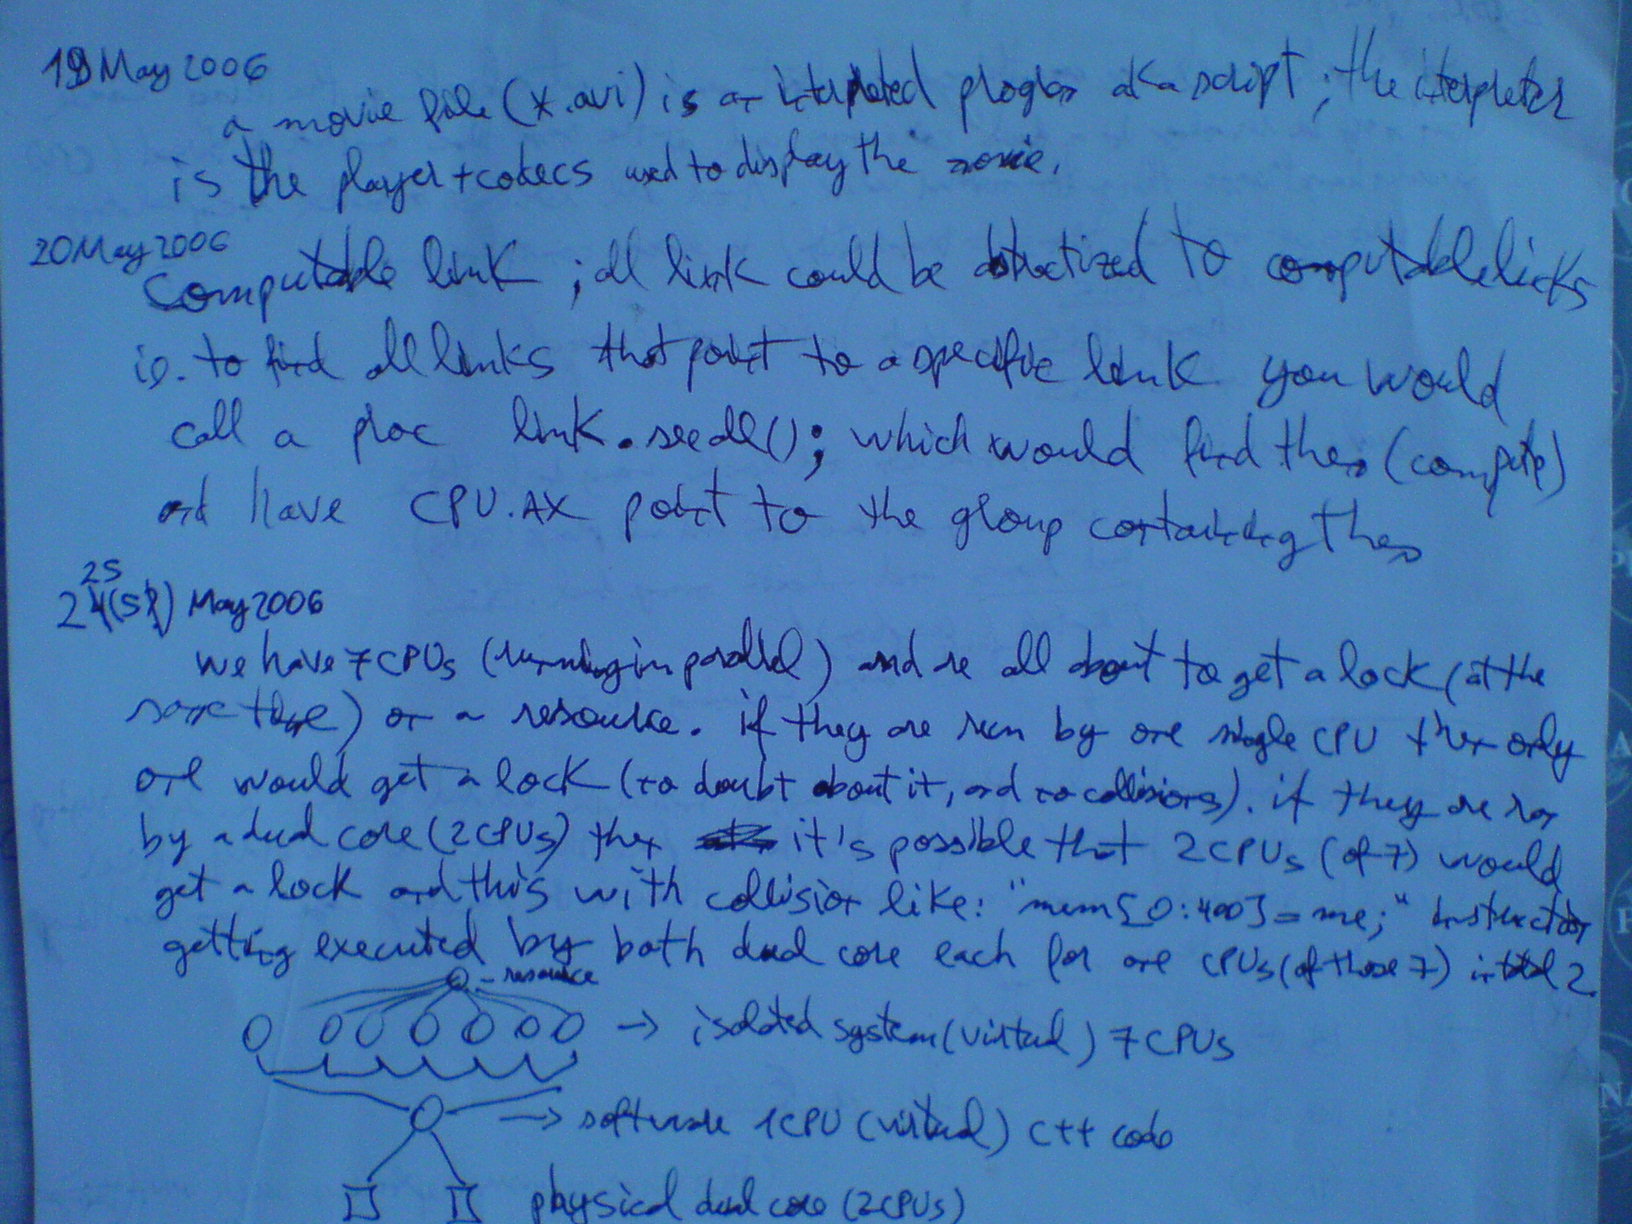 19 May 2006
a movie file (*.avi) is an interpreted program aka script; the interpreter
is the player+codecs used to display the movie.
20 May 2006
Computable link ; all link could be abstractized to computable links
ie. to find all links that point to a specific link you would
call a proc link.seeall(); which would find them (compute)
and have CPU.AX point to the group containing them
25
24(5) May 2006
we have 7 CPUs (running in parallel) and are all about to get a lock (at the
same time) on a resource. if they are run by one single CPU then only
one would get a lock (no doubt about it, and no collisions). if they are ran
by a dual core (2CPUs) then it's possible that 2CPUs (of 7) would
get a lock and this with collision like: "mem[0:400]=me;" instruction
getting executed by both dual core each for one CPUs (of those 7) in total 2.
resource
→ isolated system (virtual) 7 CPUs
→ software 1CPU (virtual) C++ code
physical dual core (2CPUs)